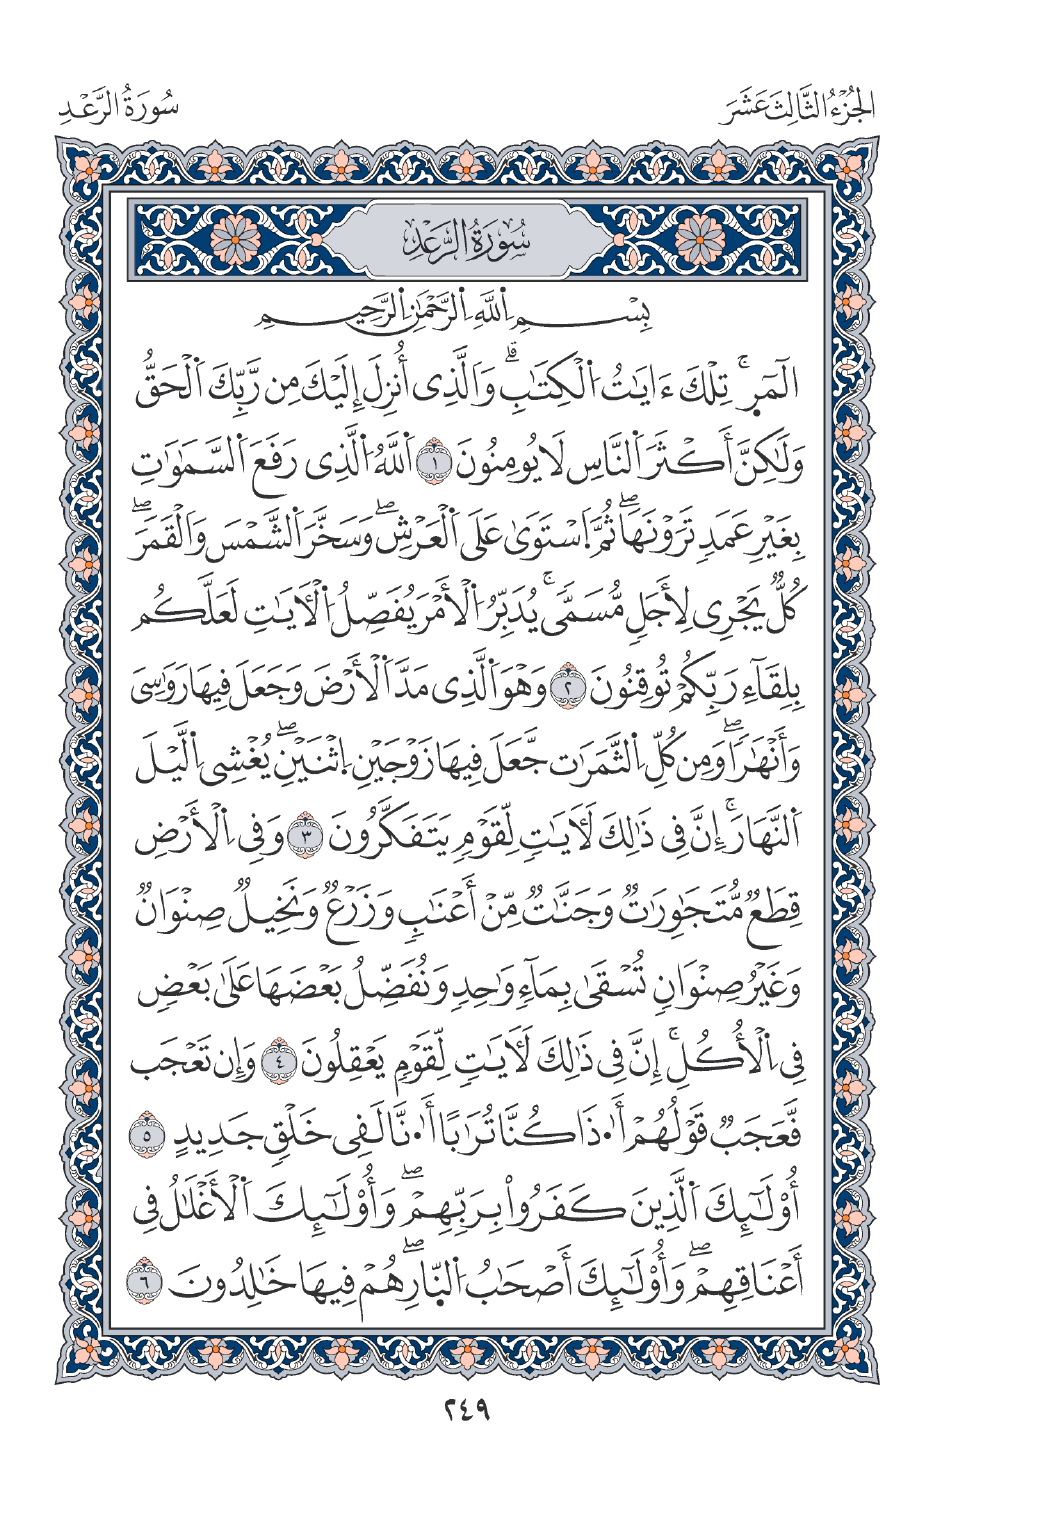 الجُزْءُ الثَّالِثَ عَشَرَ
سُورَةُ الرَّعْدِ
سُورَةُ الرَّعْدِ
بِسْمِ اِ۬للَّهِ اِ۬لرَّحْمَٰنِ اِ۬لرَّحِيمِ
الٓمِّٓرۚ تِلْكَ ءَايَٰتُ اُ۬لْكِتَٰبِۗ وَالَّذِى أُنزِلَ إِلَيْكَ مِن رَّبِّكَ اَ۬لْحَقُّ
وَلَٰكِنَّ أَكْثَرَ اَ۬لنَّاسِ لَا يُومِنُونَ ١ اَ۬للَّهُ اُ۬لَّذِى رَفَعَ اَ۬لسَّمَٰوَٰتِ
بِغَيْرِ عَمَدٍ تَرَوْنَهَاۖ ثُمَّ اَ۪سْتَوَىٰ عَلَى اَ۬لْعَرْشِۖ وَسَخَّرَ اَ۬لشَّمْسَ وَالْقَمَرَۖ
كُلٌّ يَجْرِى لِأَجَلٍ مُّسَمًّىۚ يُدَبِّرُ اُ۬لْأَمْرَ يُفَصِّلُ اُ۬لْأٓيَٰتِ لَعَلَّكُم
بِلِقَآءِ رَبِّكُمْ تُوقِنُونَ ٢ وَهْوَ اَ۬لَّذِى مَدَّ اَ۬لْأَرْضَ وَجَعَلَ فِيهَا رَوَٰسِىَ
وَأَنْهَٰرًاۖ وَمِن كُلِّ اِ۬لثَّمَرَٰت جَّعَلَ فِيهَا زَوْجَيْنِ اِ۪ثْنَيْنِۖ يُغْشِى اِ۬لَّيْلَ
اَ۬لنَّهَارَۚ إِنَّ فِى ذَٰلِكَ لَأٓيَٰتٍ لِّقَوْمٍ يَتَفَكَّرُونَ ٣ وَفِى اِ۬لْأَرْضِ
قِطَعٌ مُّتَجَٰوِرَٰتٌ وَجَنَّٰتٌ مِّنْ أَعْنَٰبٍ وَزَرْعٌ وَنَخِيلٌ صِنْوَانٌ
وَغَيْرُ صِنْوَانٍ تُسْقَىٰ بِمَآءٍ وَٰحِدٍ وَنُفَضِّلُ بَعْضَهَا عَلَىٰ بَعْضٍ
فِى اِ۬لْأُكُلِۚ إِنَّ فِى ذَٰلِكَ لَأٓيَٰتٍ لِّقَوْمٍ يَعْقِلُونَ ٤ وَإِن تَعْجَب
فَّعَجَبٌ قَوْلُهُمْ أَ۟ذَا كُنَّا تُرَٰبًا أَ۟نَّا لَفِى خَلْقٍ جَدِيدٍ ٥
أُوْلَٰٓئِكَ اَ۬لَّذِينَ كَفَرُواْ بِرَبِّهِمْۖ وَأُوْلَٰٓئِكَ اَ۬لْأَغْلَٰلُ فِى
أَعْنَاقِهِمْۖ وَأُوْلَٰٓئِكَ أَصْحَٰبُ اُ۬لنّ۪ارِۖ هُمْ فِيهَا خَٰلِدُونَ ٦
٢٤٩